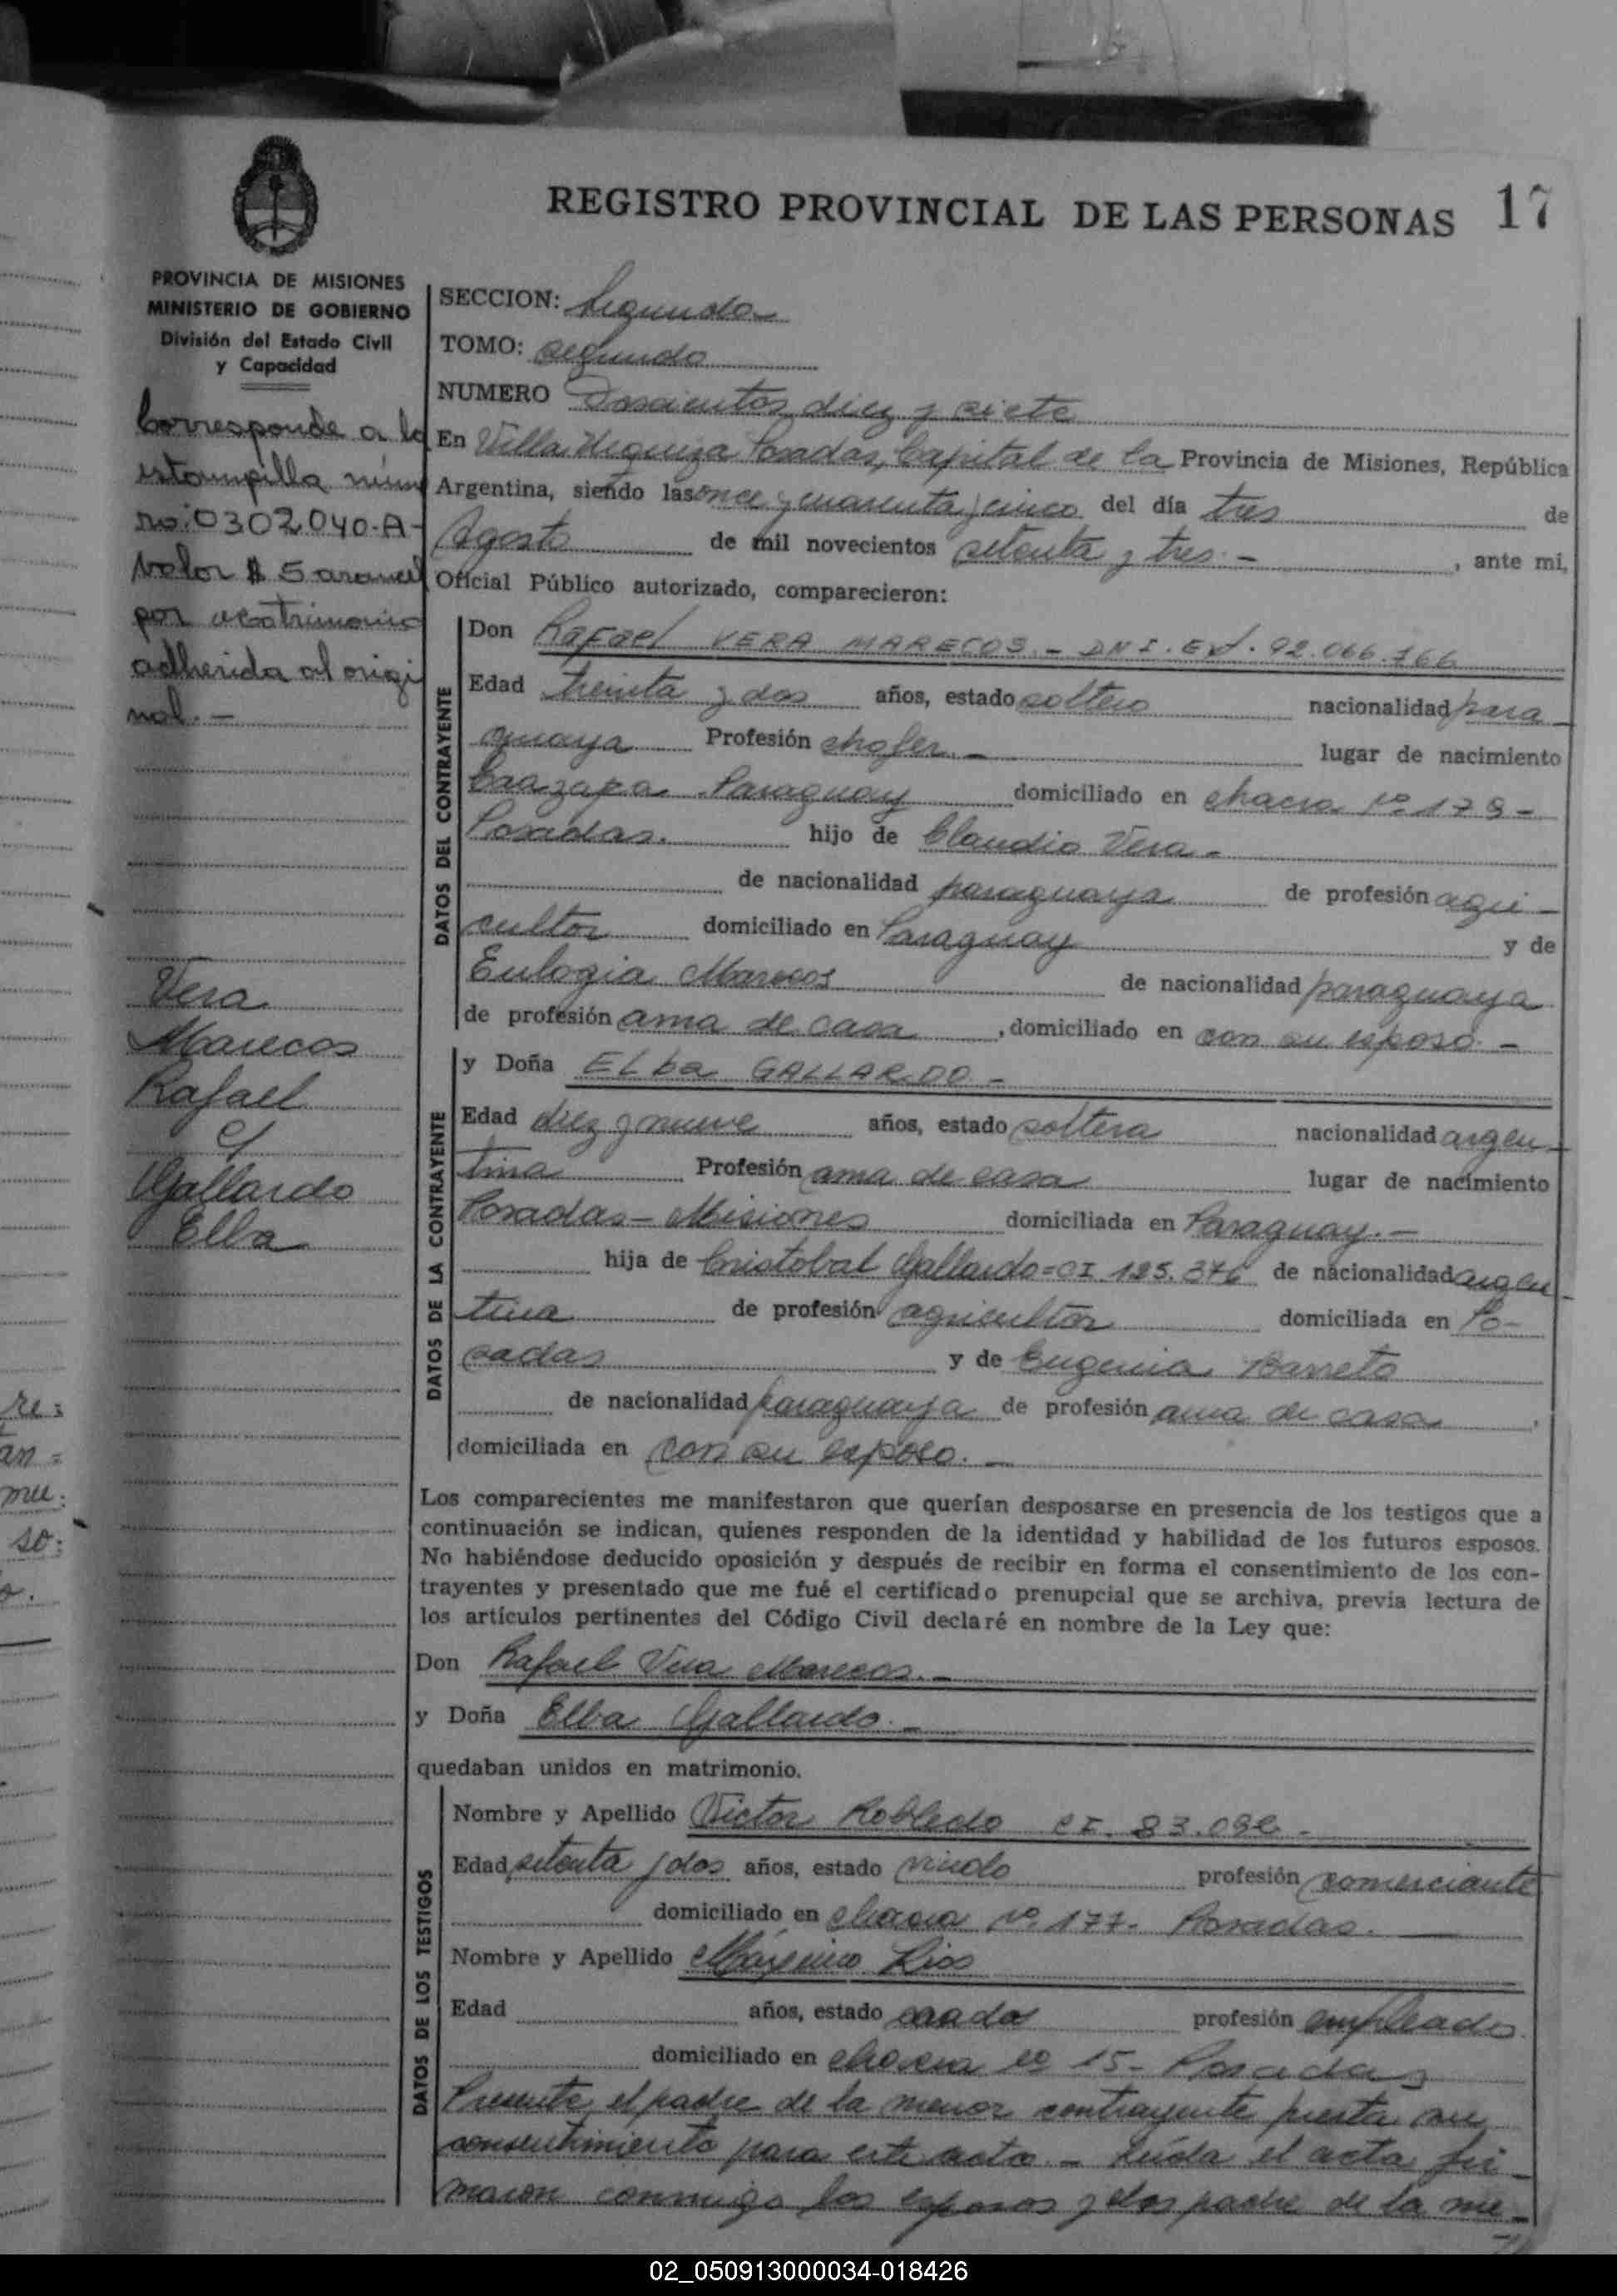 REGISTRO PROVINCIAL DE LAS PERSONAS 17
PROVINCIA DE MISIONES
MINISTERIO DE GOBIERNO
División del Estado Civil
y Capacidad
Corresponde a la
estampilla núme
ro 0302040-A-
valor $ 5 arancel
por matrimonio
adherida al origi
nal. -
Vera
Marecos
Rafael
c/
Gallardo
Elba
SECCION: Segunda
TOMO: segundo
NUMERO Doscientos diez y siete
En Villa Urquiza Posadas, Capital de la Provincia de Misiones, República
Argentina, siendo las once y cuarenta y cinco del día tres de
Agosto de mil novecientos setenta y tres. - , ante mi,
Oficial Público autorizado, comparecieron:
DATOS DEL CONTRAYENTE
Don Rafael VERA MARECOS - DNI. Ext. 92.066.766
Edad treinta y dos años, estado soltero nacionalidad para-
guaya Profesión chofer. - lugar de nacimiento
Caazapa Paraguay domiciliado en chacra Nº 179 -
Posadas. hijo de Claudio Vera -
de nacionalidad paraguaya de profesión agri-
cultor domiciliado en Paraguay y de
Eulogia Marecos de nacionalidad paraguaya
de profesión ama de casa , domiciliado en con su esposo. -
DATOS DE LA CONTRAYENTE
y Doña ELba GALLARDO -
Edad diez y nueve años, estado soltera nacionalidad argen-
tina Profesión ama de casa lugar de nacimiento
Posadas - Misiones domiciliada en Paraguay. -
hija de Cristobal Gallardo = CI. 125.376 de nacionalidad argen-
tina de profesión agricultor domiciliada en Po-
sadas y de Eugenia Barreto
de nacionalidad paraguaya de profesión ama de casa ,
domiciliada en con su esposo. -
Los comparecientes me manifestaron que querían desposarse en presencia de los testigos que a
continuación se indican, quienes responden de la identidad y habilidad de los futuros esposos.
No habiéndose deducido oposición y después de recibir en forma el consentimiento de los con-
trayentes y presentado que me fué el certificado prenupcial que se archiva, previa lectura de
los artículos pertinentes del Código Civil declaré en nombre de la Ley que:
Don Rafael Vera Marecos. -
y Doña Elba Gallardo. -
quedaban unidos en matrimonio.
DATOS DE LOS TESTIGOS
Nombre y Apellido Victor Robledo CI. 83.092 -
Edad setenta y dos años, estado viudo profesión comerciante
domiciliado en chacra Nº 177. Posadas. -
Nombre y Apellido Máximo Rios
Edad años, estado casado profesión empleado
domiciliado en chacra Nº 15 - Posadas
Presente el padre de la menor contrayente presta su
consentimiento para este acto - Leída el acta fir-
maron conmigo los esposos y el padre de la me-
re:
an =
mu:
so:
02_050913000034-018426